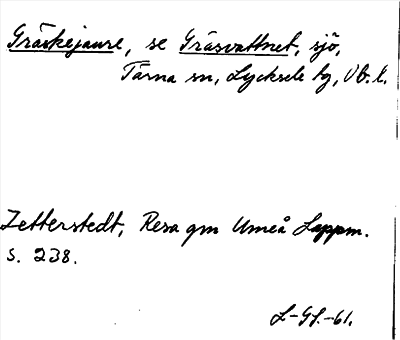 Gräskejaure, se Gräsvattnet, sjö,
Tärna sn, Lycksele lg, Vb. l.
Zetterstedt, Resa gm Umeå Lappm.
s. 238.
L-Gf.-61.